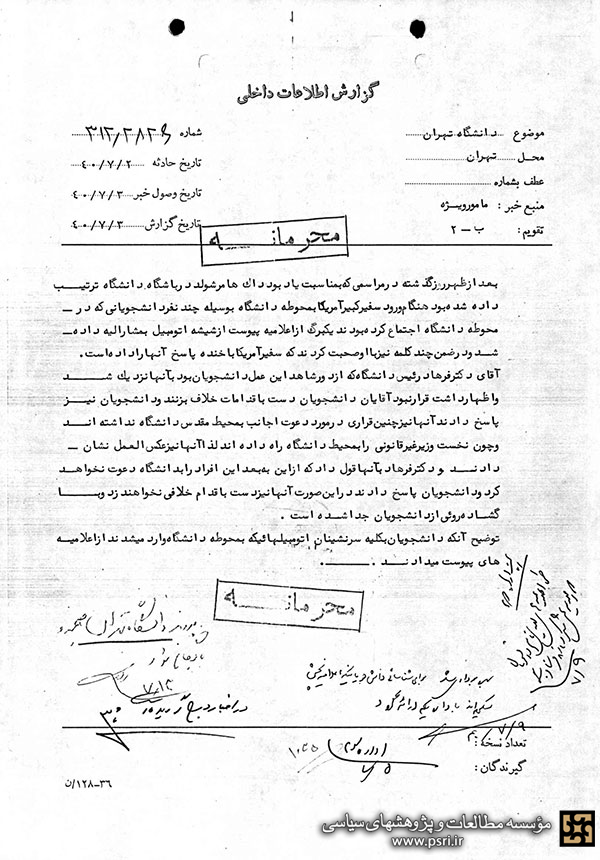 گزارش اطلاعات داخلی
موضوع دانشگاه تهران
محل تهران
عطف بشماره
منبع خبر : مامورویژه
تقویم : ب – ۲
شماره ۳۱۲/۲۸۲
تاریخ حادثه ۴۰/۷/۲
تاریخ وصول خبر ۴۰/۷/۳
تاریخ گزارش ۴۰/۷/۳
محرمانه
بعد ازظهرروزگذشته درمراسمی که بمناسبت یاد بود داك هامرشولد درباشگاه دانشگاه ترتیب
داده شده بود هنگام ورود سفیرکبیر آمریکا بمحوطه دانشگاه بوسیله چند نفر دانشجویانی که در –
محوطه دانشگاه اجتماع کرده بودند یکبرگ ازاعلامیه پیوست ازشیشه اتومبیل بمشارالیه داده –
شد ودرضمن چند کلمه نیزبا اوصحبت کردند که سفیرآمریکا باخنده پاسخ آنهاراداده است .
آقای دکترفرهاد رئیس دانشگاه که ازدورشاهد این عمل دانشجویان بود بآنها نزدیك شد
واظهارداشت قرارنبود آقایان دانشجویان دست باقدامات خلاف بزنند ودانشجویان نیز
پاسخ دادند آنها نیزچنین قراری درمورد دعوت اجانب بمحیط مقدس دانشگاه نداشته اند
وچون نخست وزیرغیرقانونی رابمحیط دانشگاه راه داده اند لذا آنها نیزعکس العمل نشان –
دادند و دکترفرهاد بآنها قول داد که ازاین به بعد این افراد رابدانشگاه دعوت نخواهد
کرد ودانشجویان پاسخ دادند دراین صورت آنها نیزدست باقدام خلافی نخواهند زد وبا
گشاده روئی ازدانشجویان جدا شده است .
توضیح آنکه دانشجویان بکلیه سرنشینان اتومبیلهائیکه بمحوطه دانشگاه وارد میشدند ازاعلامیه
های پیوست میدادند .
محرمانه
۷/۹
تعداد نسخه :
گیرندگان :
۳۶–۱۲۸/ن
مؤسسه مطالعات و پژوهشهای سیاسی
www.psri.ir